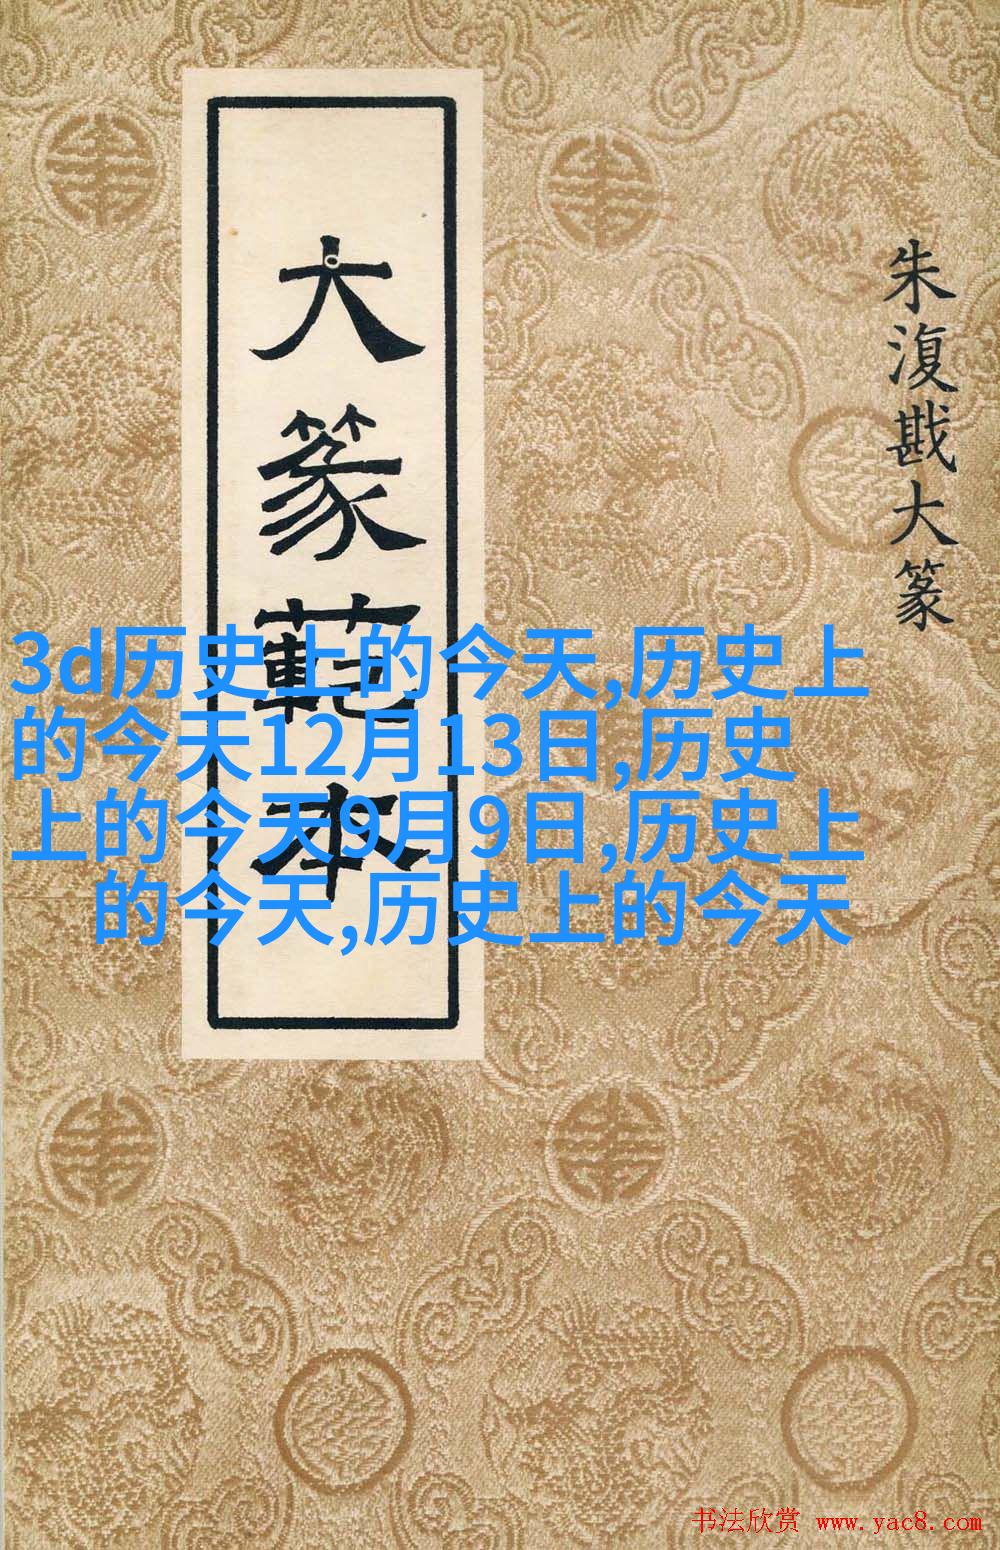 朱復戡大篆
大篆範本
3d历史上的今天,历史上
的今天12月13日,历史
上的今天9月9日,历史上
的今天,历史上的今天
书法欣赏 www.yac8.com